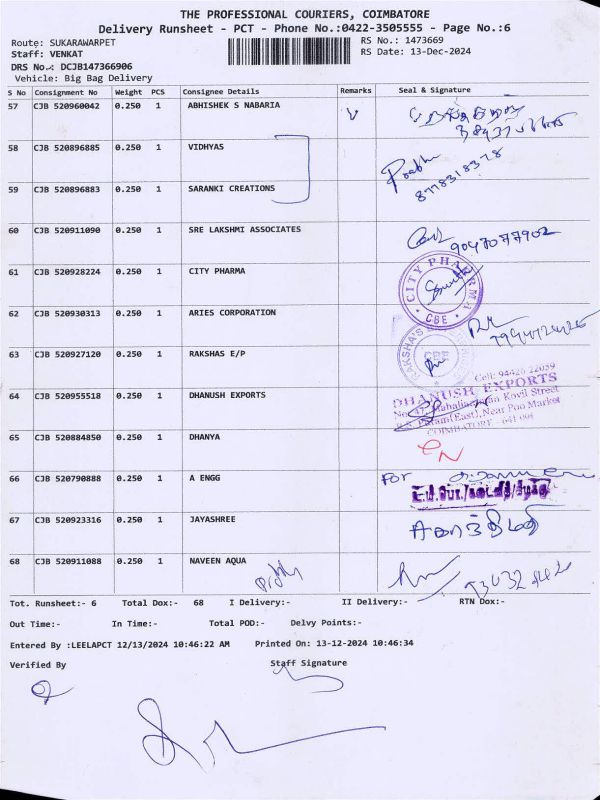 THE PROFESSIONAL COURIERS, COIMBATORE
Delivery Runsheet - PCT - Phone No.:0422-3505555 - Page No.:6
Route: SUKARAWARPET RS No.: 1473669
Staff: VENKAT RS Date: 13-Dec-2024
DRS No.: DCJB147366906
Vehicle: Big Bag Delivery
S No Consignment No Weight PCS Consignee Details Remarks Seal & Signature
57 CJB 520960042 0.250 1 ABHISHEK S NABARIA
58 CJB 520896885 0.250 1 VIDHYAS
Prabhu
8778318378
59 CJB 520896883 0.250 1 SARANKI CREATIONS
60 CJB 520911090 0.250 1 SRE LAKSHMI ASSOCIATES
9047077902
61 CJB 520928224 0.250 1 CITY PHARMA
CITY PHARMA
CBE
62 CJB 520930313 0.250 1 ARIES CORPORATION
63 CJB 520927120 0.250 1 RAKSHAS E/P
RAKSHA'S
CBE
Cell: 94426 22059
64 CJB 520955518 0.250 1 DHANUSH EXPORTS
DHANUSH EXPORTS
No. 47, Mahalingapuram Kovil Street
(East), Near Poo Market
COIMBATORE - 641 001
65 CJB 520884850 0.250 1 DHANYA
66 CJB 520790888 0.250 1 A ENGG
For
67 CJB 520923316 0.250 1 JAYASHREE
68 CJB 520911088 0.250 1 NAVEEN AQUA
Tot. Runsheet:- 6 Total Dox:- 68 I Delivery:- II Delivery:- RTN Dox:-
Out Time:- In Time:- Total POD:- Delvy Points:-
Entered By :LEELAPCT 12/13/2024 10:46:22 AM Printed On: 13-12-2024 10:46:34
Verified By Staff Signature